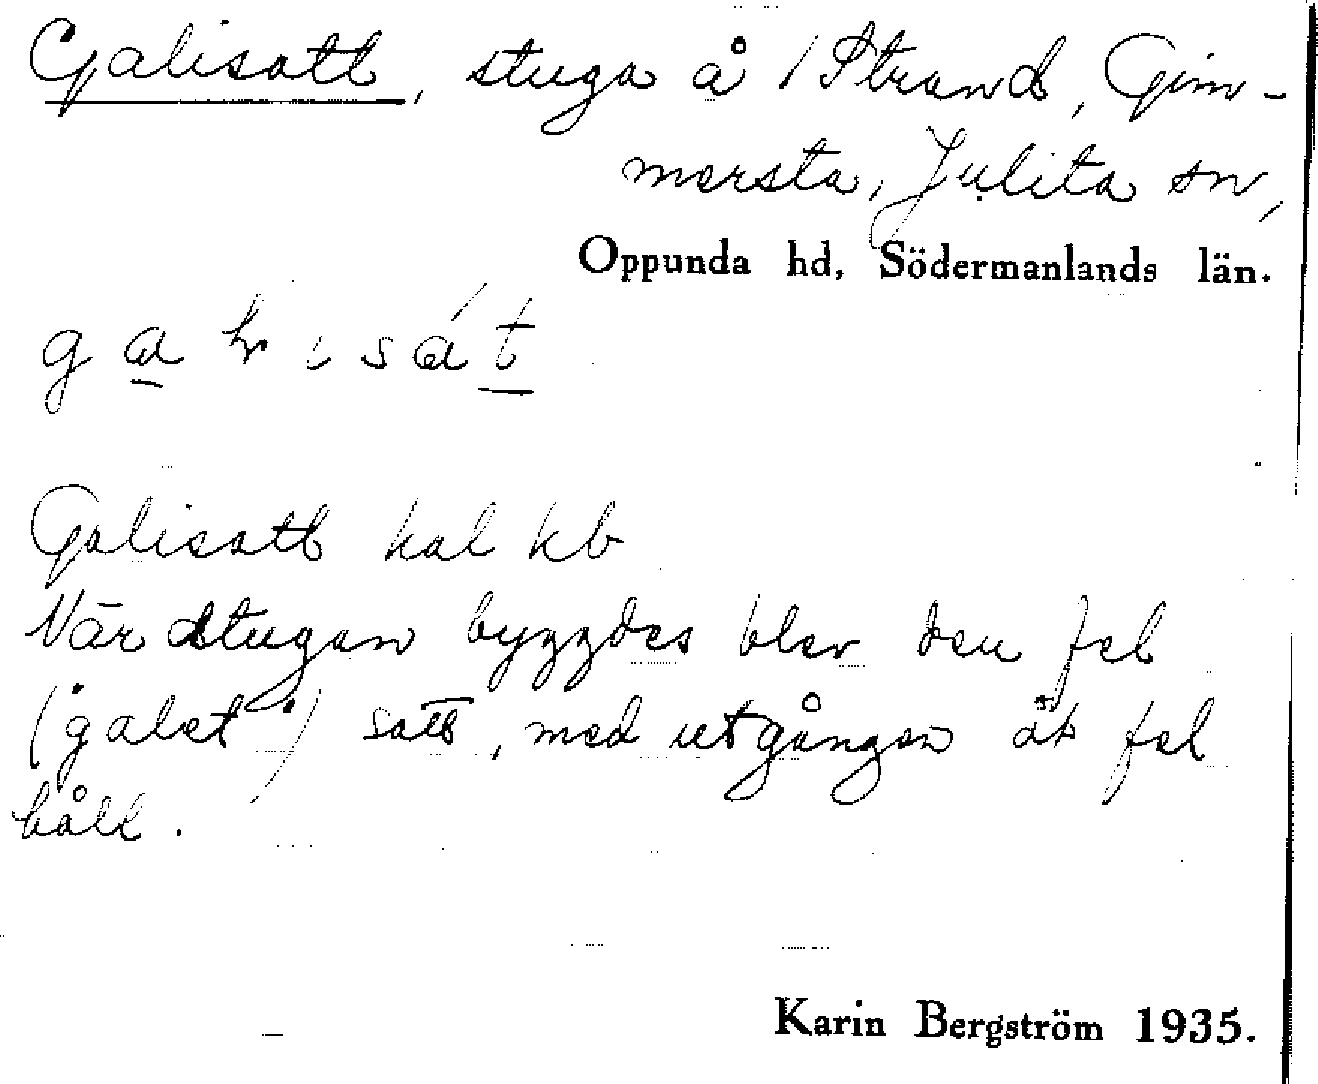 Galisatt, stuga å / Strand, Gim-
mersta, Julita sn,
Oppunda hd, Södermanlands län.
Galisatt kal kb
När stugan byggdes blev den fel
("galet") satt, med utgången åt fel
håll.
Karin Bergström 1935.